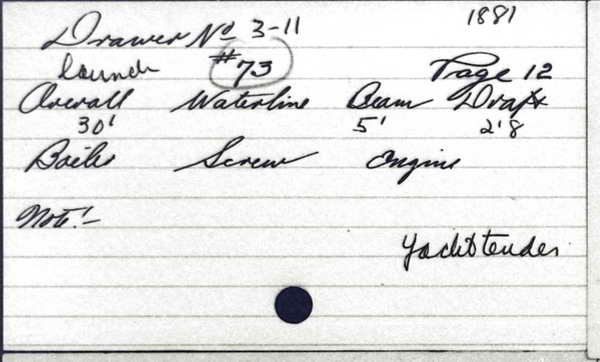 Drawer No 3-11 1881
launch #73 Page 12
Overall Waterline Beam Draft
30' 5' 2'8
Boiler Screw Engine
Note!-
Yacht tender